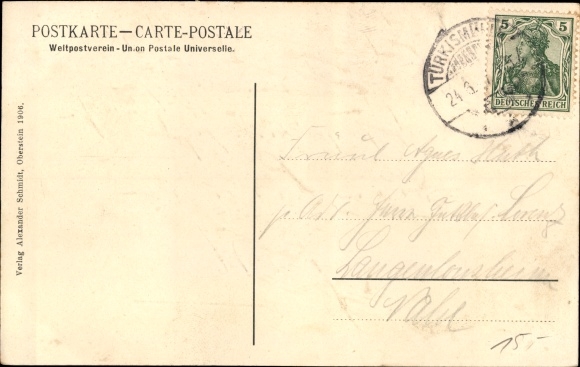 POSTKARTE — CARTE-POSTALE
Weltpostverein - Union Postale Universelle.
Verlag Alexander Schmidt, Oberstein 1906.
TÜRKISMÜ
24
5 5
DEUTSCHES REICH
Fräul Agnes
p. Adr. Herrn
Langenlonsheim
Nahe
15.-